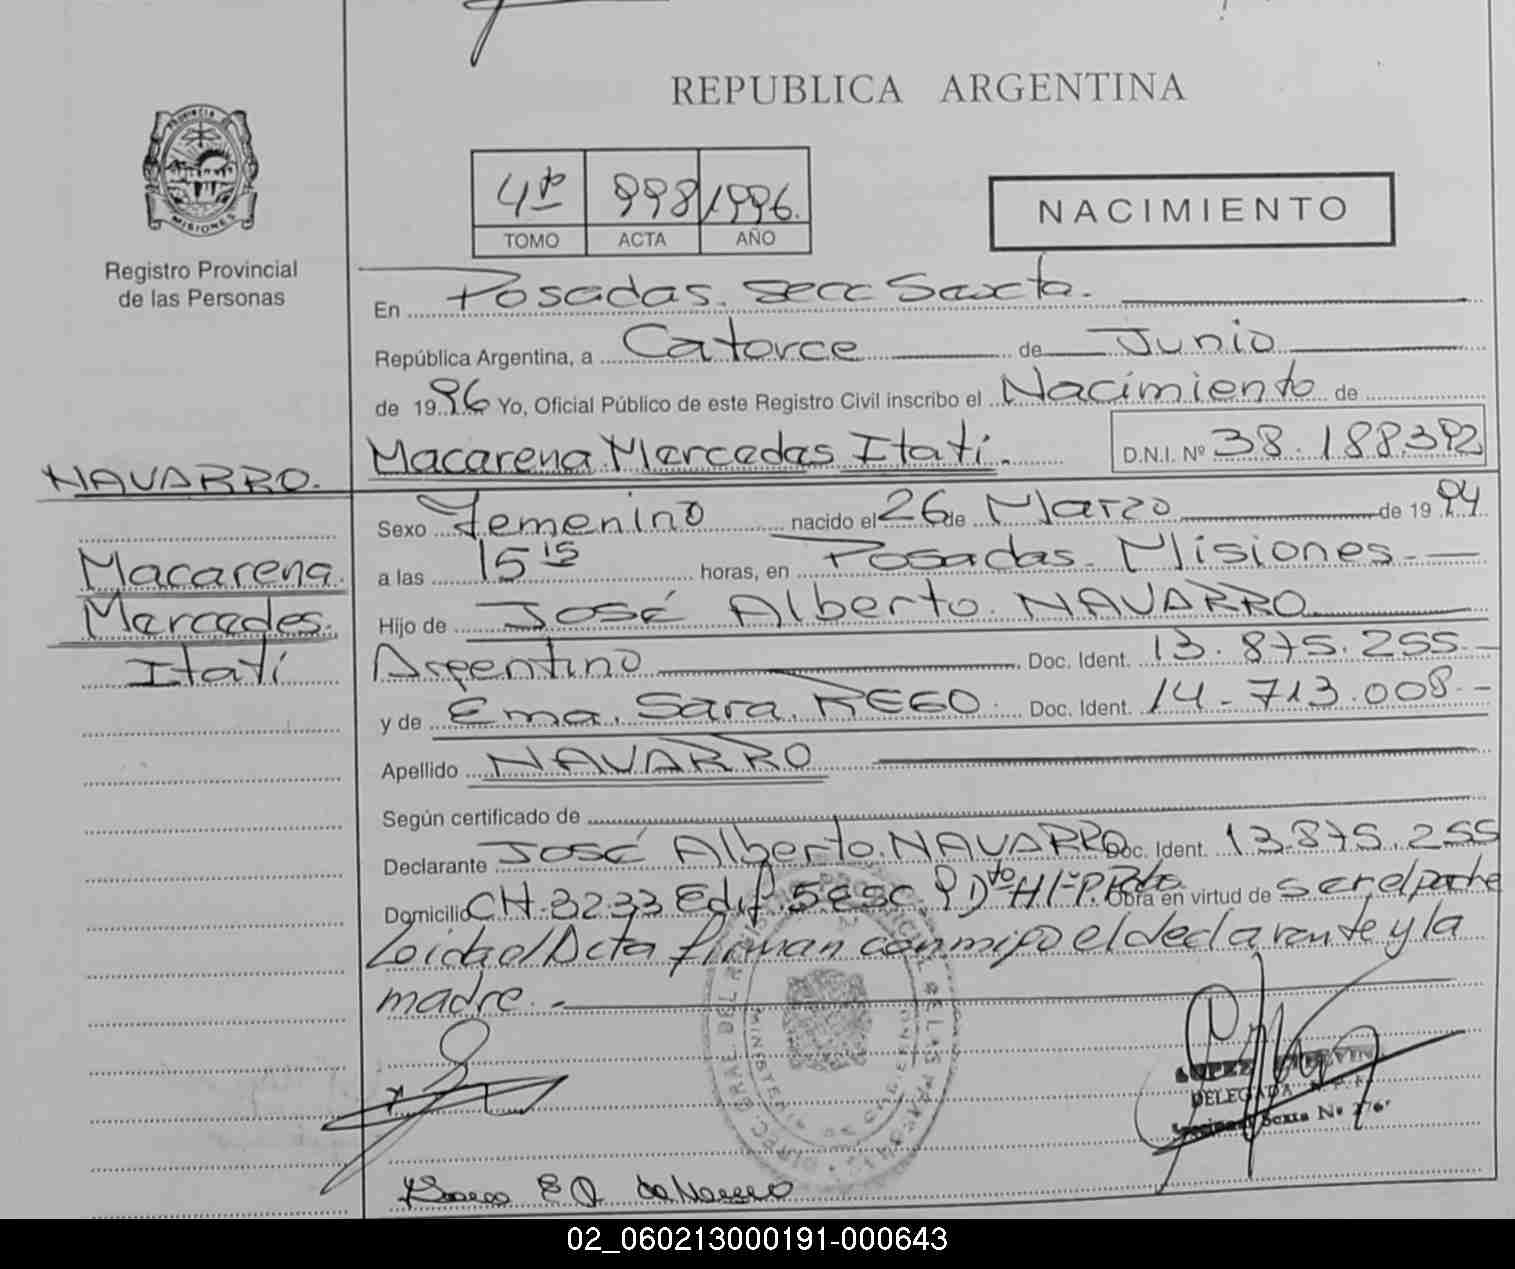 REPUBLICA ARGENTINA
PROVINCIA DE
MISIONES
Registro Provincial
de las Personas
4to 998 1996.
TOMO ACTA AÑO
NACIMIENTO
En Posadas. Secc Sexta.
República Argentina, a Catorce de Junio
de 1996 Yo, Oficial Público de este Registro Civil inscribo el Nacimiento de
Macarena Mercedes Itatí. D.N.I. Nº 38.188.392
NAVARRO.
Macarena
Mercedes.
Itatí
Sexo Femenino nacido el 26 de Marzo de 1994
a las 15 15 horas, en Posadas. Misiones.
Hijo de José Alberto. NAVARRO
Argentino Doc. Ident. 13.875.255.
y de Ema. Sara. REGO. Doc. Ident. 14.713.008.
Apellido NAVARRO
Según certificado de
Declarante José Alberto. NAVARRO Doc. Ident. 13.875.255
Domicilio CH. 3233 Edif. 5 esc. 9 Dto H 1º P. Obra en virtud de ser el padre
Leida el Acta firman conmigo el declarante y la
madre.
LOPEZ
DELEGADA
Sexta Nº 276
02_060213000191-000643